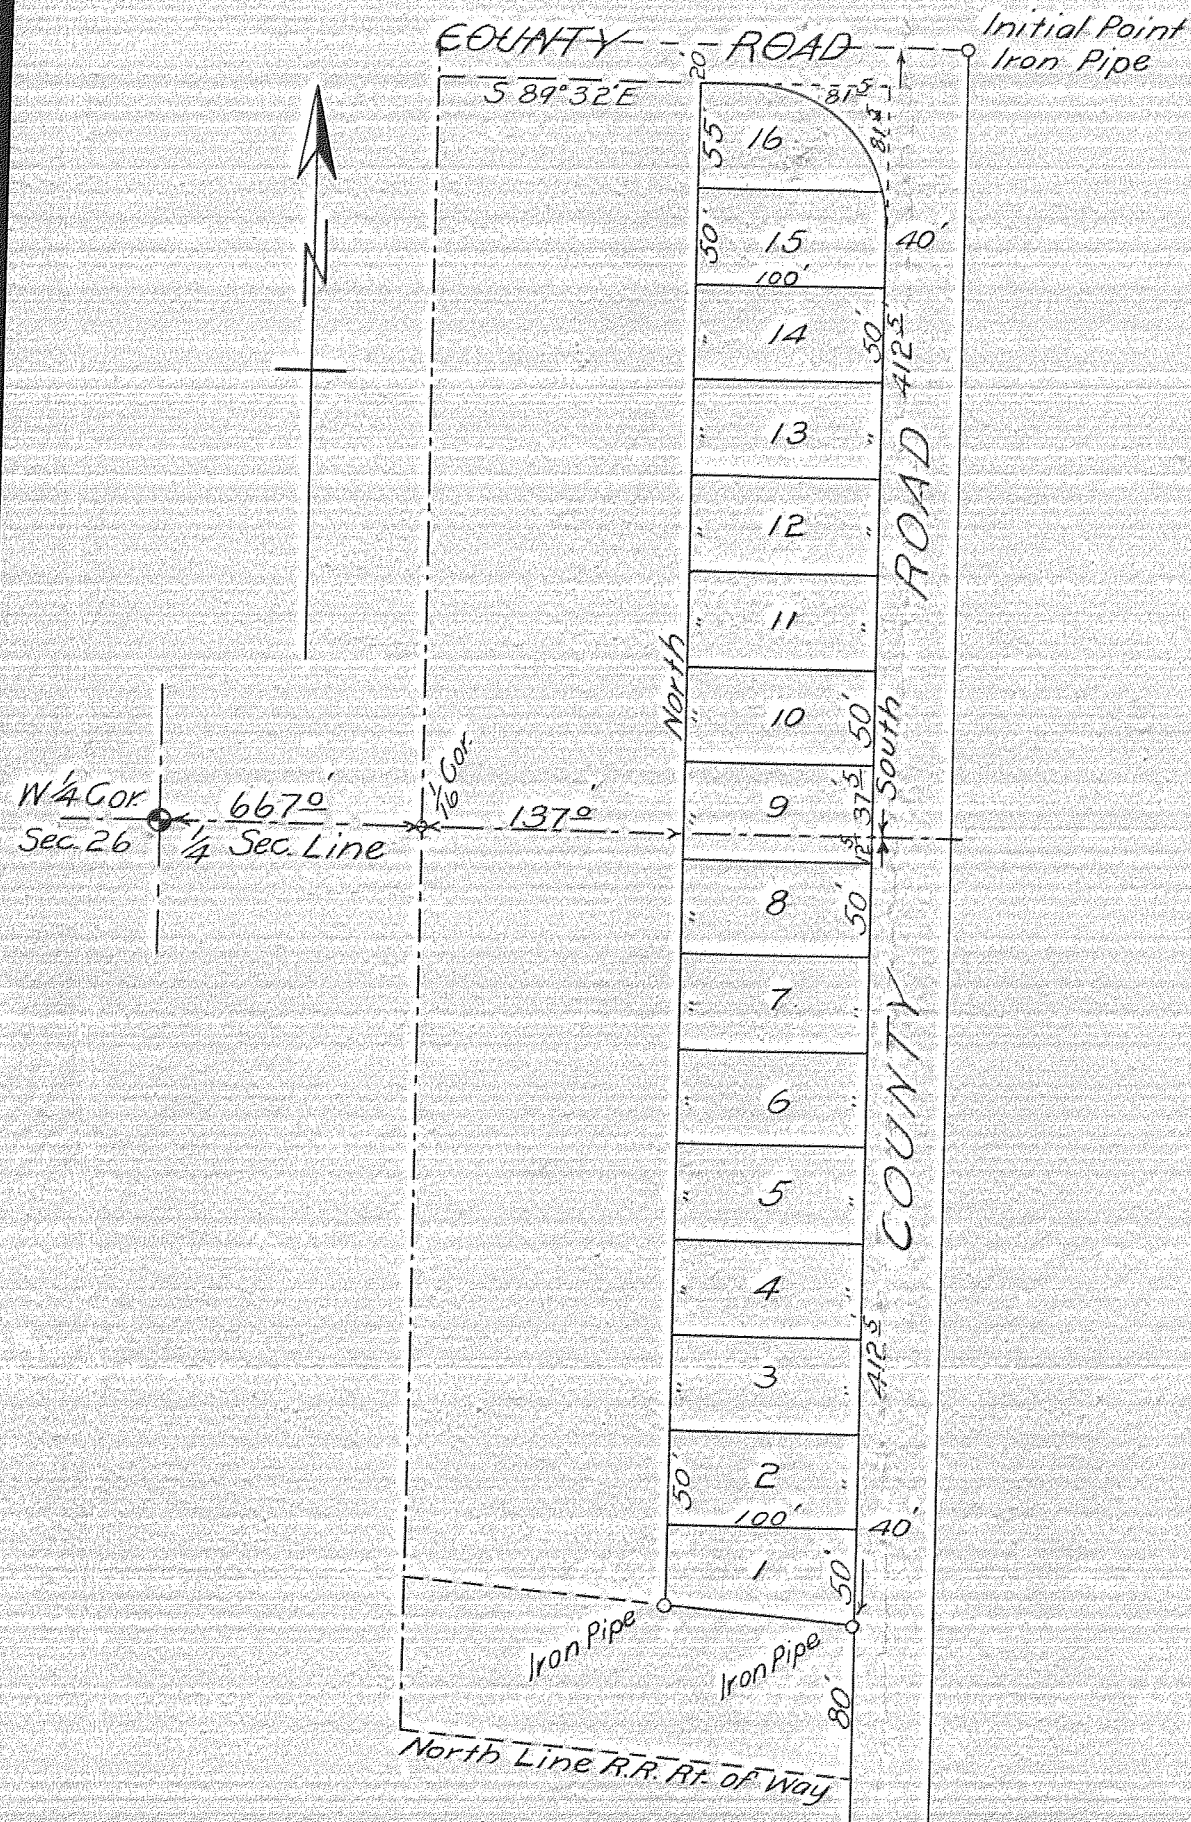 COUNTY ROAD
Initial Point
Iron Pipe
20
S 89°32'E
81⁵
81⁵
55'
16
N
50'
15
40'
100'
"
14
50'
412⁵'
"
13
"
ROAD
"
12
"
"
11
"
North
"
10
50'
South
W 1/4 Cor.
Sec. 26
667⁰'
1/4 Sec. Line
1/16 Cor.
137⁰'
"
9
37⁵'
12⁵
"
8
50'
"
7
"
COUNTY
"
6
"
"
5
"
"
4
"
"
3
"
412⁵'
50'
2
"
100'
40'
1
50'
Iron Pipe
Iron Pipe
80'
North Line R.R. Rt. of Way